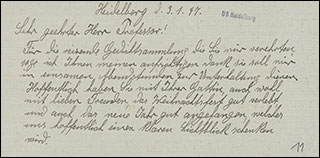 Heidelberg d. 3. 1. 47.
UB Heidelberg
Sehr geehrter Herr Professor!
Für die reizende Gedichtsammlung die Sie mir verehrten
sage ich Ihnen meinen aufrichtigen Dank, sie soll mir
in einsamen Abendstunden zur Unterhaltung dienen.
Hoffentlich haben Sie mit Ihrer Gattin, auch wohl
mit lieben Freunden das Weihnachtsfest gut verlebt
und auch das neue Jahr gut angefangen, welches
uns hoffentlich einen klaren Lichtblick schenken
wird.
11